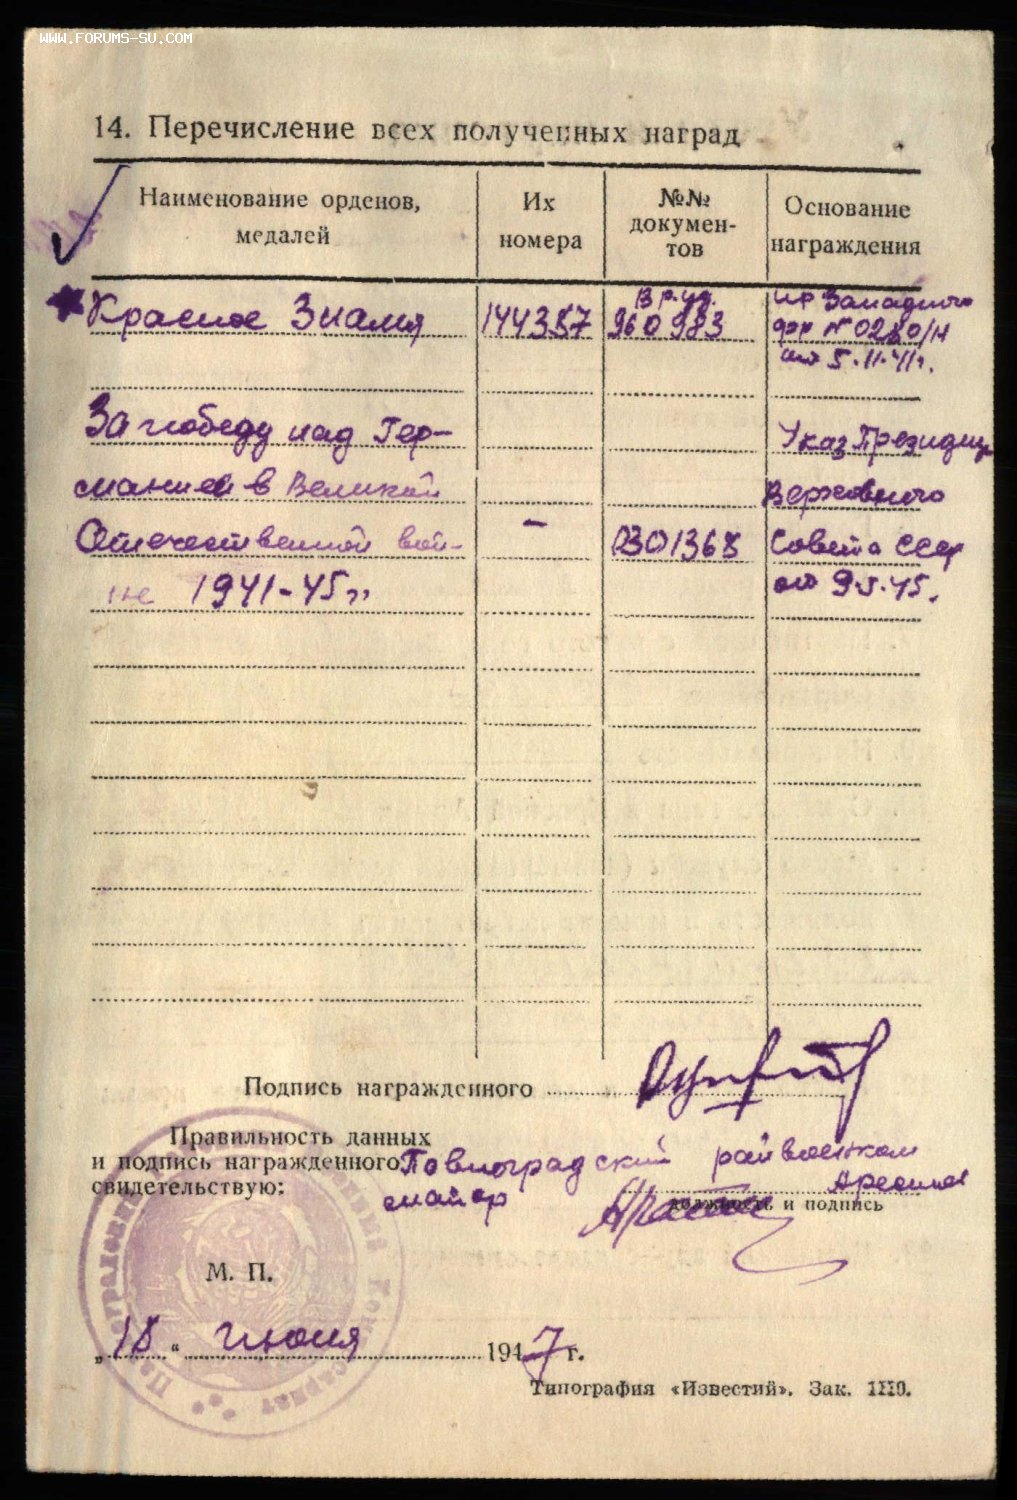 WWW.FORUMS-SU.COM
14. Перечисление всех полученных наград
Наименование орденов, медалей
Их номера
№№ докумен-тов
Основание награждения
Вр.уд.
Красное Знамя 144387 960983 пр Западного
фр № 0280/н
от 5.11.41г.
За победу над Гер- Указ Президиу
манией в Великой Верховного
Отечественной вой- - 0301368 Совета СССР
не 1941-45г. от 9.5.45.
Подпись награжденного
Правильность данных
и подпись награжденного Павлоградский райвоенком
свидетельствую: майор
должность и подпись
М. П.
„18“ июня 1947 г.
Типография «Известий». Зак. 1110.